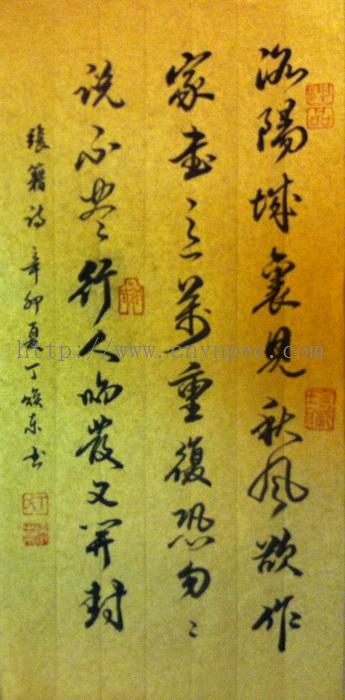 洛陽城裏見秋風欲作
家書意萬重復恐匆〻
说不尽行人临發又開封
張籍詩 辛卯夏丁焕东书
http://www.cnynpec.com